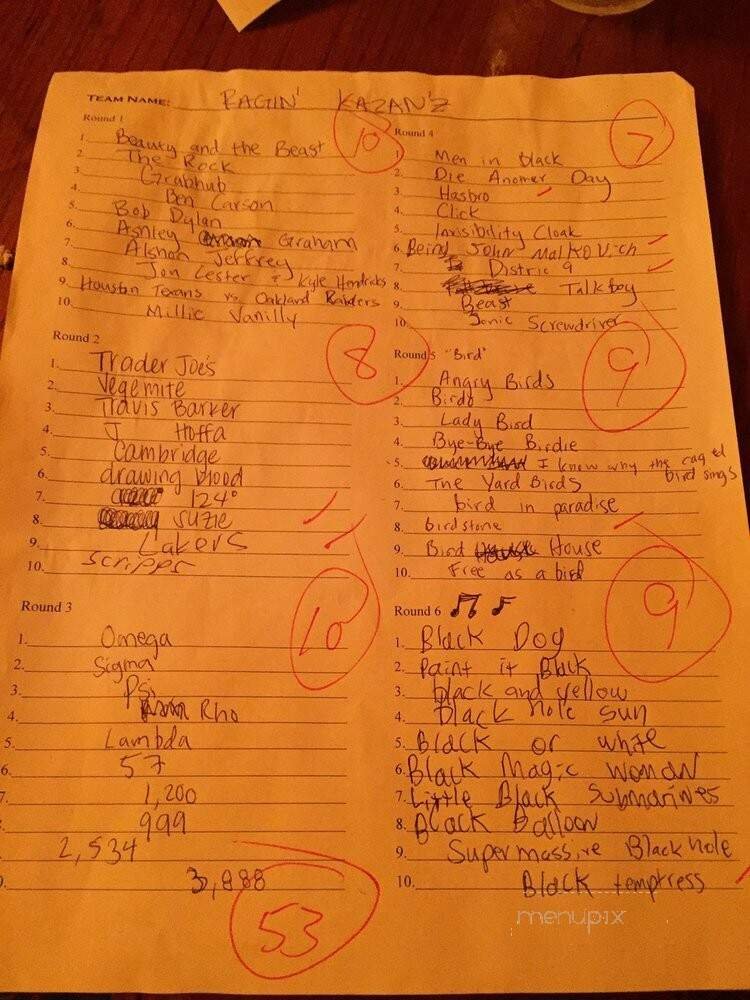 TEAM NAME: RAGIN' KAZAN'Z
Round 1
10
1. Beauty and the Beast
2. The Rock
3. Grubhub
4. Ben Carson
5. Bob Dylan
6. Ashley Graham
7. Alshon Jeffrey
8. Jon Lester & Kyle Hendricks
9. Houston Texans vs. Oakland Raiders
10. Millie Vanilly
Round 2
8
1. Trader Joe's
2. Vegemite
3. Travis Barker
4. J Hoffa
5. Cambridge
6. drawing blood
7. 124°
8. Suzie
9. Lakers
10. Scripps
Round 3
10
1. Omega
2. Sigma
3. Psi
4. Rho
5. Lambda
6. 57
7. 1,200
999
2,534
3,888
53
Round 4
7
1. Men in Black
2. Die Another Day
3. Hasbro
4. Click
5. Invisibility Cloak
6. Being John Malkovich
7. Distric 9
8. Talkboy
9. Beast
10. Sonic Screwdriver
Round 5 "Bird"
9
1. Angry Birds
2. Birdo
3. Lady Bird
4. Bye-Bye Birdie
5. I know why the caged bird sings
6. The Yard Birds
7. bird in paradise
8. birdstone
9. Bird House
10. Free as a bird
Round 6
9
1. Black Dog
2. Paint it Black
3. black and yellow
4. black hole sun
5. Black or white
6. Black Magic woman
7. Little Black Submarines
8. Black Balloon
9. Supermassive Black hole
10. Black temptress
menupix